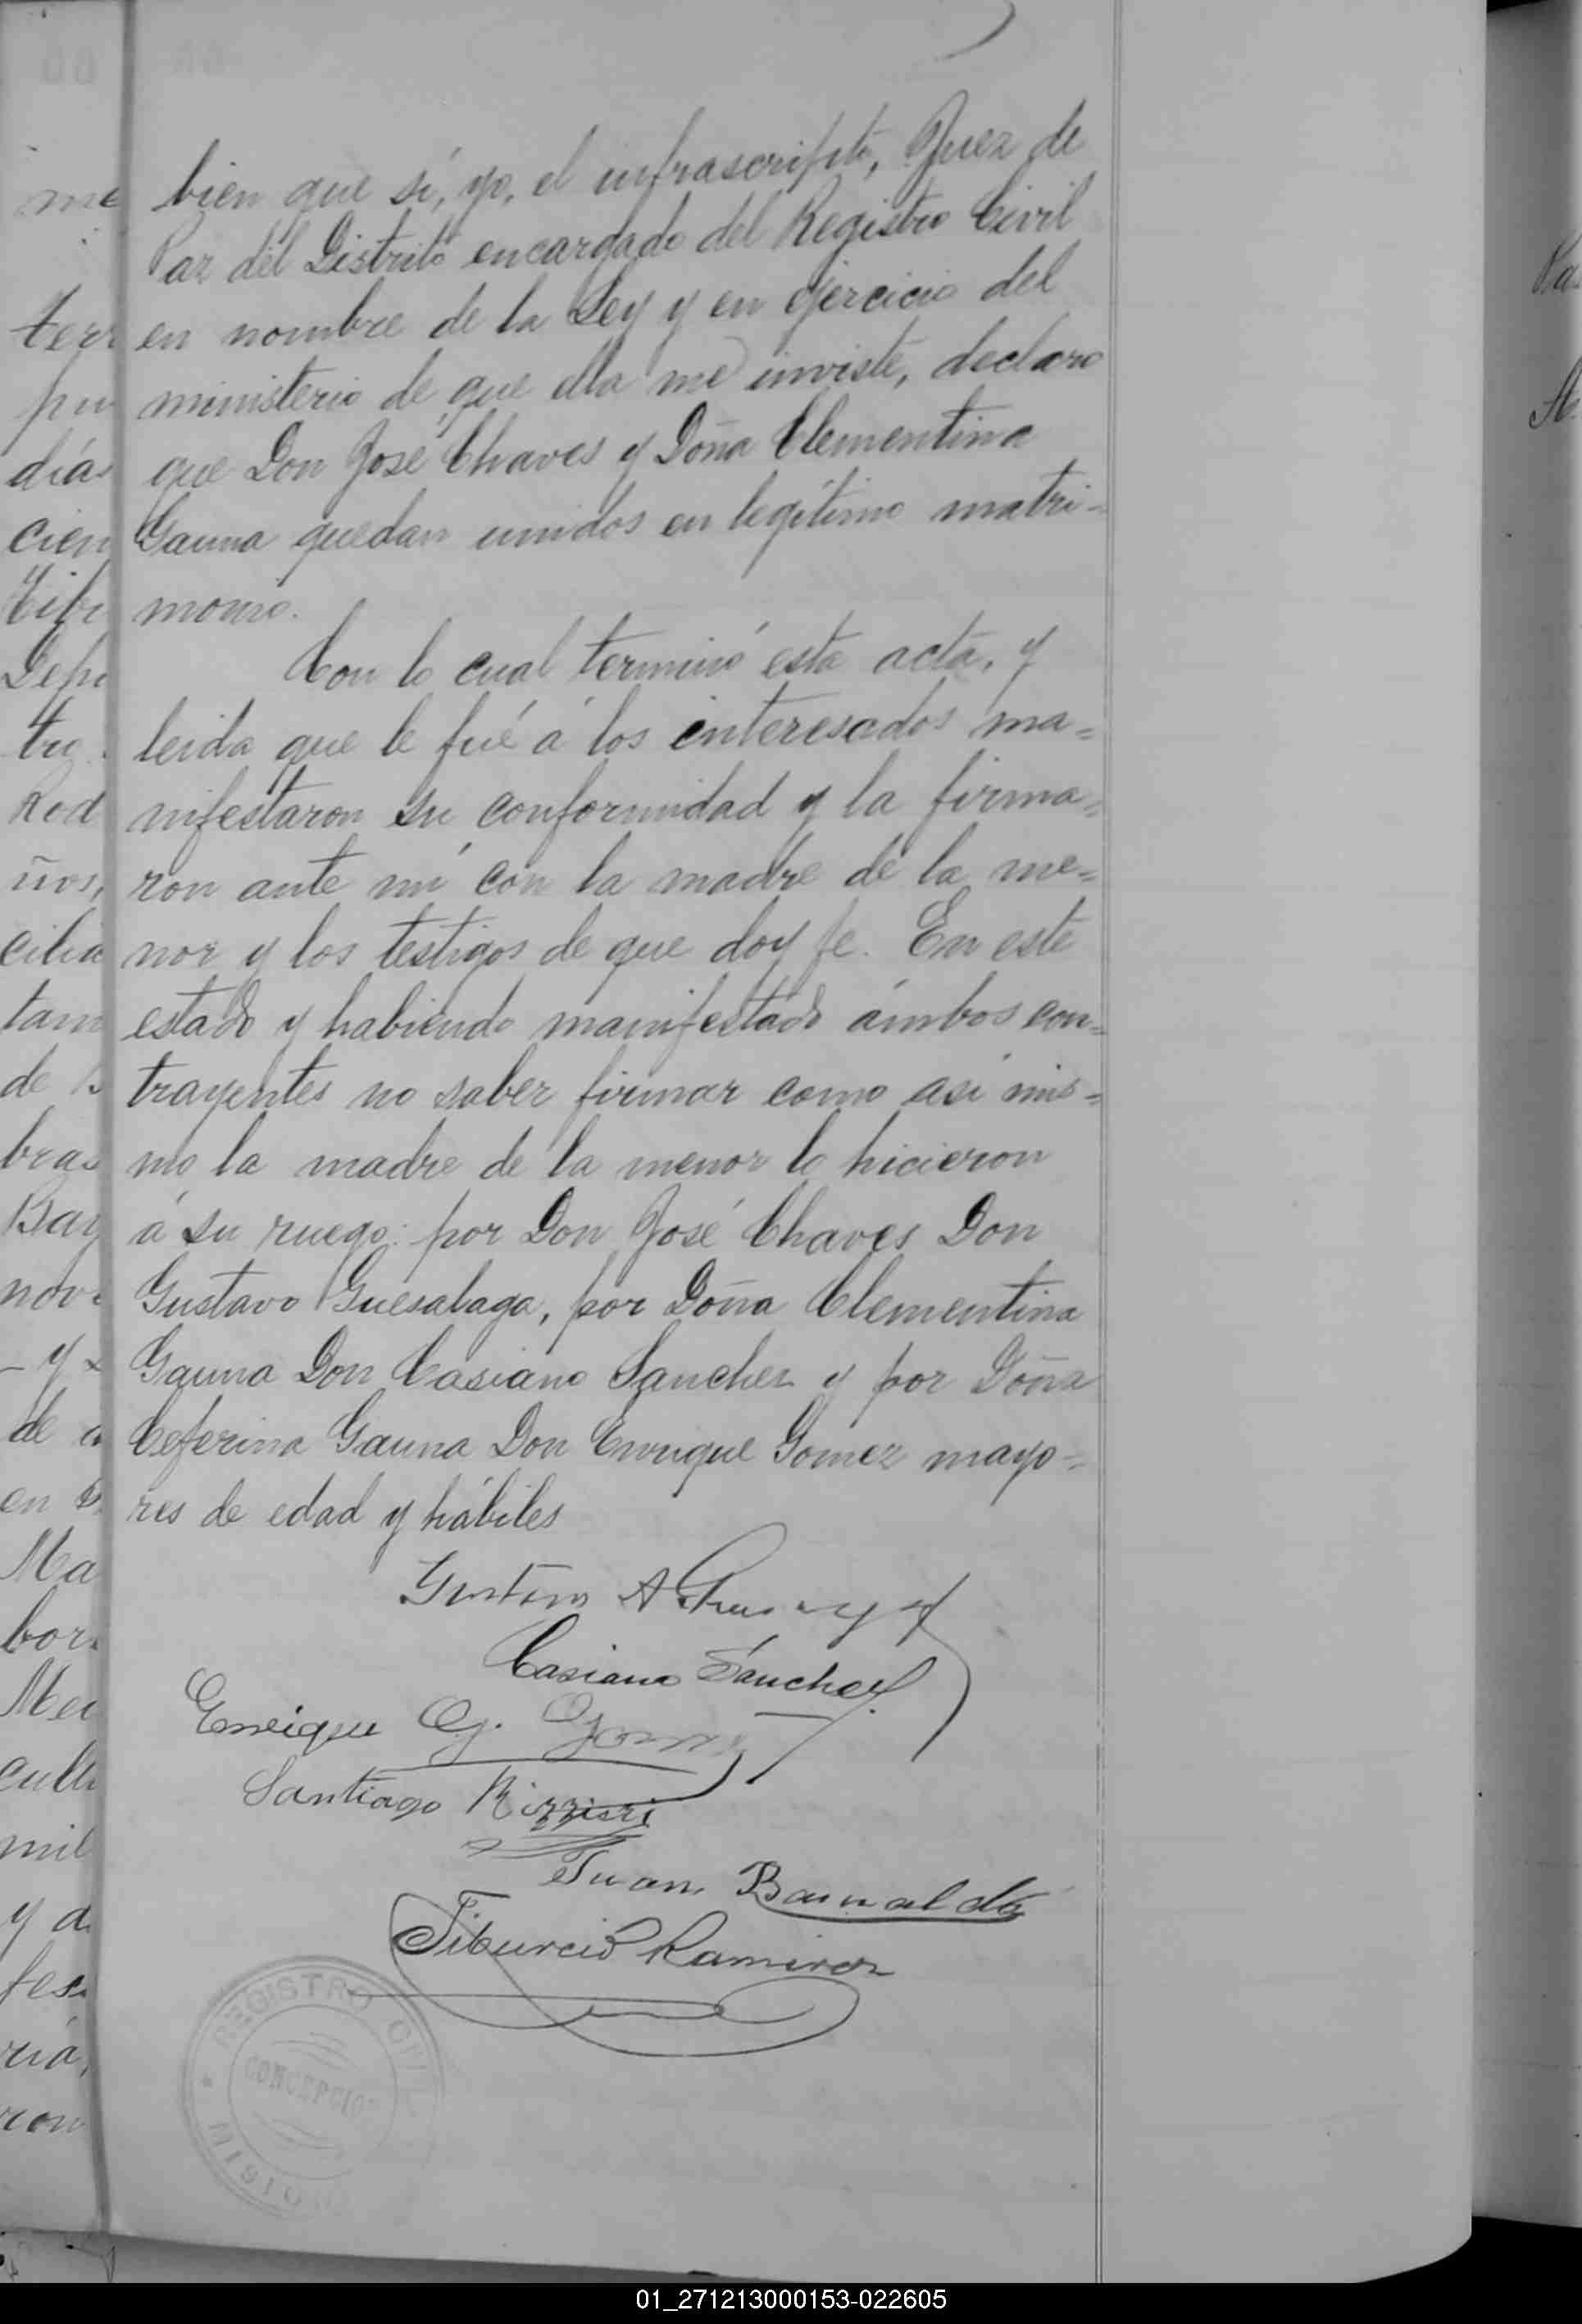 bien que sí, yo, el infrascripto, Juez de
Paz del Distrito encargado del Registro Civil
en nombre de la Ley y en ejercicio del
ministerio de que ella me inviste, declaro
que Don José Chaves y Doña Clementina
Gauna quedan unidos en legítimo matri-
monio.
Con lo cual terminó esta acta, y
leida que le fué á los interesados ma=
nifestaron su conformidad y la firma=
ron ante mí con la madre de la me=
nor y los testigos de que doy fe. En este
estado y habiendo manifestado ámbos con=
trayentes no saber firmar como así mis=
mo la madre de la menor lo hicieron
á su ruego: por Don José Chaves Don
Gustavo Guesalaga, por Doña Clementina
Gauna Don Casiano Sanchez y por Doña
Ceferina Gauna Don Enrique Gomez mayo=
res de edad y hábiles
Gustavo A.
Casiano Sánchez
Enrique G. Gomez
Santiago
Juan
Tiburcio Ramirez
REGISTRO CIVIL
CONCEPCION
me
terr
pu
días
cien
Tibu
Depa
tro
Rod
ños,
cilia
tam
de B
bras
Bay
nove
- y s
de a
en
Ma
bor
Mer
culti
mil
y d
fes
ria,
ron
01_271213000153-022605